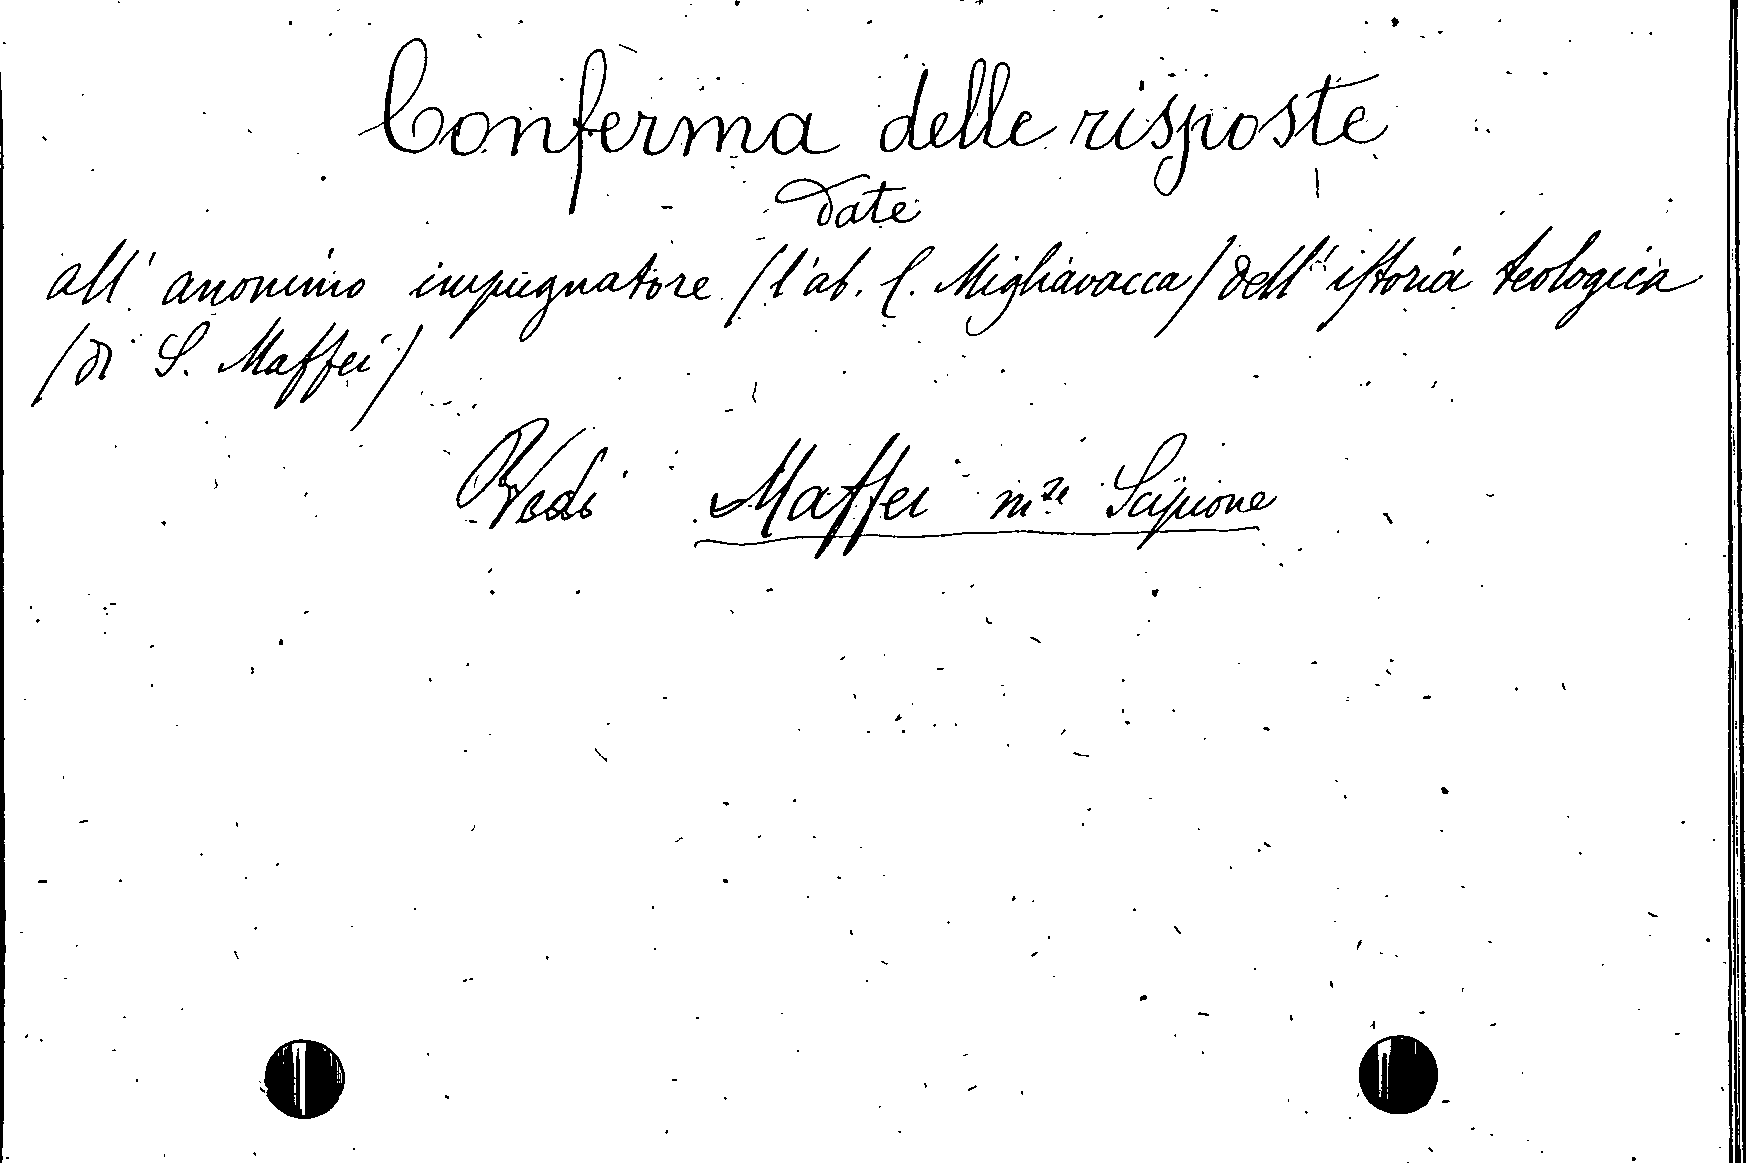 Conferma delle risposte
date
all' anonimo impugnatore (l'ab. C. Migliavacca) dell'istoria teologica
(di S. Maffei)
Vedi Maffei m.se Scipione